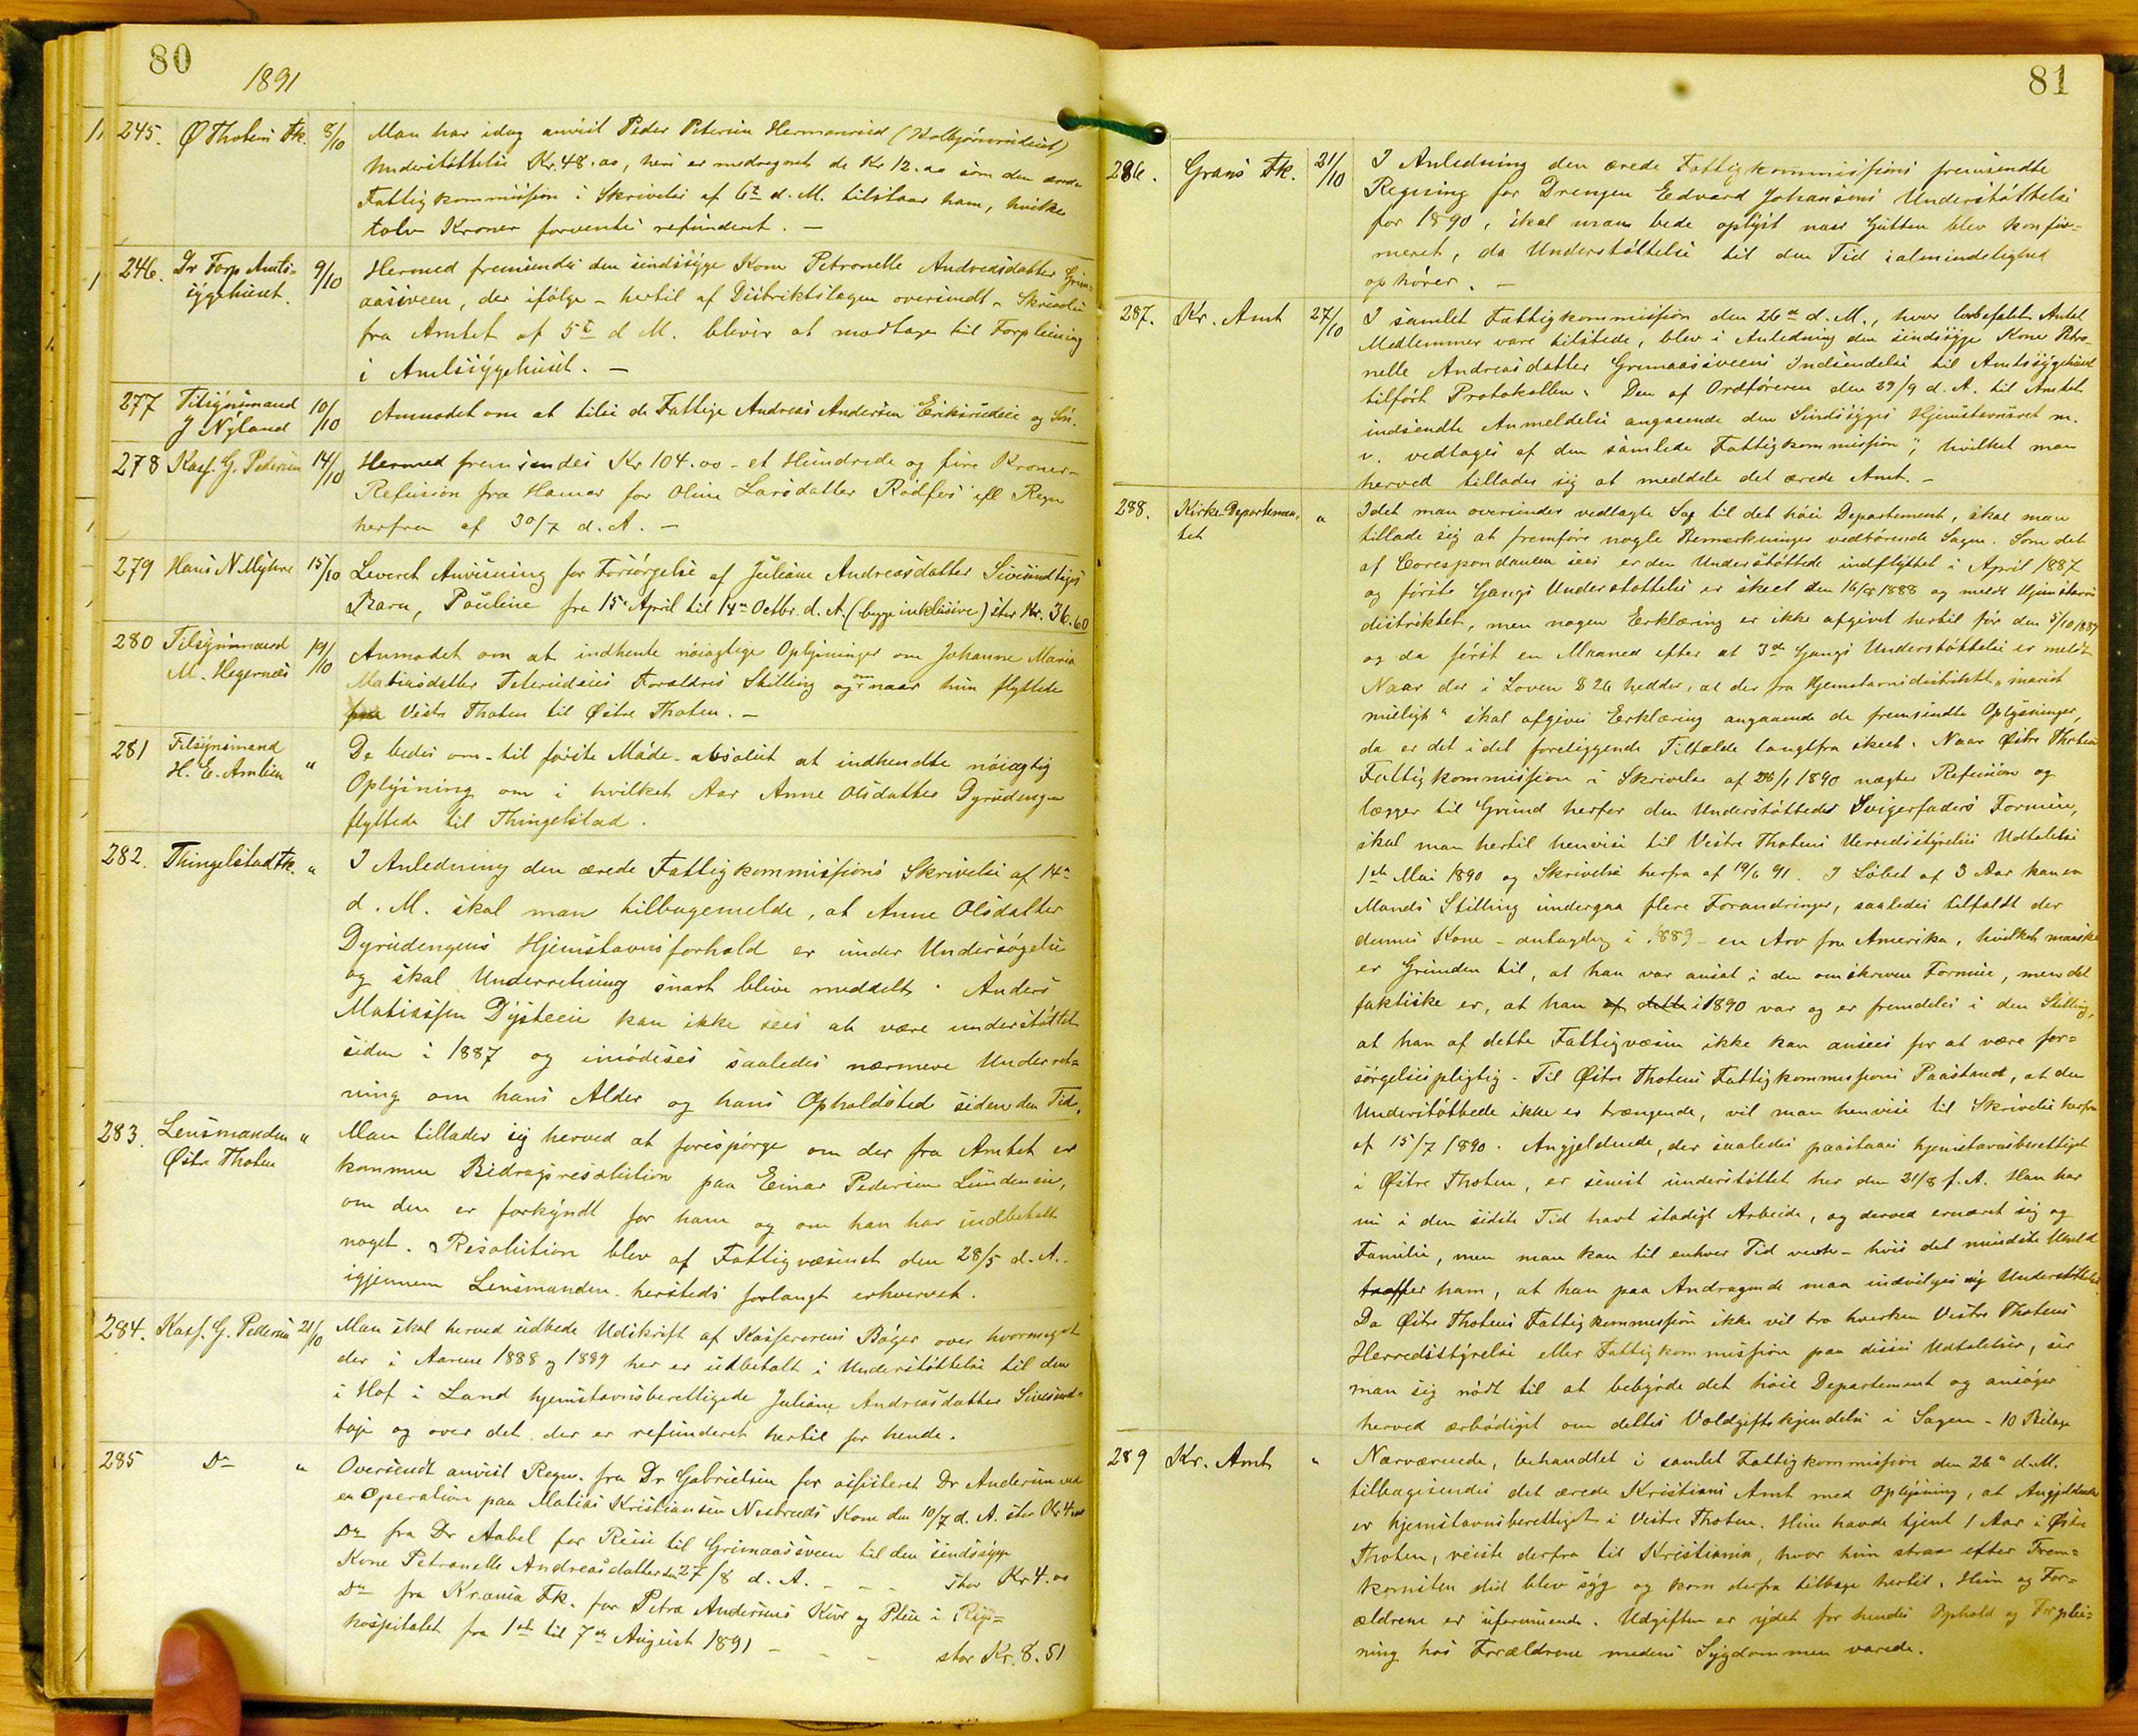 80
1891
245. Ø Thotens Fk. 8/10 Man har idag anvist Peder Petersen Hermanrud
Understøttelse Kr. 48.00, heri er medregnet de Kr 12.00 som den ærede
Fattigkommission i Skrivelse af 6te d. M. tilstaar ham, hvilke
tolv Kroner forventes refunderet. —
246. Dr Farp Amts- 9/10 Hermed fremsendes den sindssyge Kone Petronelle Andreasdatter Grim-
sygehuset. aassveen, der ifølge - hertil af Distriktslægen oversendt - Skrivelse
fra Amtet af 5te d M. bliver at modtage til Forpleining
i Amtssygehuset. —
277 Tilsynsmand 10/10 Anmodet om at tilse de Fattige Andreas Andersen Eriksrudeie og Søn.
J Nyland
278 Kass. G. Pedersen 14/10 Hermed fremsendes Kr 104.00 - et Hundrede og fire Kroner -
Refusion fra Hamar for Oline Larsdatter Rødfos efl Regn
herfra af 30/7 d. A. —
279 Hans N Myhre 15/10 Leveret Anvisning for Forsørgelse af Juliane Andreasdatter Sivesindtajes
Barn, Pauline fra 15. April til 14de Octbr. d. A. (begge inklusive) stor Kr. 36.60
280 Tilsynsmand 19/10 Anmodet om at indhente nøiagtige Oplysninger om Johanne Maria
M. Hegernæs Matiasdatter Forældres Stilling og om naar hun flyttede
fra Vestre Thoten til Østre Thoten. —
281 Tilsynsmand " De bedes om - til første Møde - absolut at indhendte nøiagtig
H. E. Amlien Oplysning om i hvilket Aar Anne Olsdatter Dyrudengen
flyttede til Thingelstad.
282. Thingelstad Fk. " I Anledning den ærede Fattigkommissions Skrivelse af 14de
d. M. skal man tilbagemelde, at Anne Olsdatter
Dyrudengens Hjemstavnsforhold er under Undersøgelse
og skal Underretning snart blive meddelt. Anders
Matiassen Dysteeie kan ikke sees at være understøttet
siden i 1887 og imødeses saaledes nærmere Underret-
ning om hans Alder og hans Opholdsted siden den Tid.
283. Lensmanden " Man tillader sig herved at forespørge om der fra Amtet er
Østre Thoten kommen Bidragsresolution paa Einar Pedersen Lundeneie,
om den er forkyndt for ham og om han har indbetalt
noget. Resolution blev af Fattigvæsenet den 28/5 d. A.
igjennem Lensmanden hersteds forlangt erhvervet.
284. Kass. G. Pedersen 21/10 Man skal herved udbede Udskrift af Kassererens Bøger over hvormeget
der i Aarene 1888 og 1889 her er udbetalt i Understøttelse til den
i Hof i Land hjemstavnsberettigede Juliane Andreasdatter Sivesind-
taje og over det der er refunderet hertil for hende.
285 Do " Oversendt anvist Regn. fra Dr Gabrielsen for assisteret Dr Andersen ved
en Operation paa Matias Kristiansen Nesbruds Kone den 10/7 d. A. stor Kr 4.00
Do fra Dr Aabel for Reise til Grimaassveen til den sindssyge
Kone Petronelle Andreasdatter den 27/8 d. A. - - - stor Kr 4.00
Do fra Krania Fk. for Petra Andersens Kur og Pleie i Rigs-
hospitalet fra 1ste til 7de August 1891 - - - stor Kr. 8.51
81
286. Grans Fk. 21/10 I Anledning den ærede Fattigkommissions fremsendte
Regning for Drengen Edvard Johansens Understøttelse
for 1890, skal man bede oplyst naar Gutten blev konfir-
meret, da Understøttelse til den Tid i almindelighed
ophører. —
287. Kr. Amt 27/10 I samlet Fattigkommission den 26de d. M., hvor lovbefalet Antal
Medlemmer vare tilstede, blev i Anledning den sindssyge Kone Petro-
nelle Andreasdatter Grimaassveens Indsendelse til Amtssygehuset
tilført Protokollen: Den af Ordføreren den 29/9 d. A. til Amtet
indsendte Anmeldelse angaaende den Sindssyges Hjemstavnsret m.
v. vedtages af den samlede Fattigkommission", hvilket man
herved tillader sig at meddele det ærede Amt. —
288. Kirke-Departemen- " Idet man oversender vedlagte Sag til det høie Departement, skal man
tet tillade sig at fremføre nogle Bemerkninger vedkommende Sagen. Som det
af Corespondancen sees er den Understøttede indflyttet i April 1887
og første Gangs Understøttelse er skeet den 16/8 1888 og meldt Hjemstavns
distriktet, men nogen Erklæring er ikke afgivet hertil før den 5/10 1889
og da først en Maaned efter at 3de Gangs Understøttelse er meldt
Naar der i Loven § 26 hedder, at der fra Hjemstavnsdistriktet "snarest
muligt" skal afgives Erklæring angaaende de fremsendte Oplysninger,
da er det i det foreliggende Tilfælde langtfra skeet. Naar Østre Thotens
Fattigkommission i Skrivelse af 28/1 1890 nægter Refusion og
lægger til Grund herfor den Understøttedes Svigerfaders Formue,
skal man hertil henvise til Vestre Thotens Herredsstyrelses Udtalelse
1ste Mai 1890 og Skrivelse herfra af 19/6 91. I Løbet af 3 Aar kan en
Mands Stilling undergaa flere Forandringer, saaledes tilfaldt der
dennes Kone - antagelig i 1889 - en Arv fra Amerika, hvilket maaske
er Grunden til, at han var anset i den omskrevne Formue, men det
faktiske er, at han af dette i 1890 var og er fremdeles i den Stilling,
at han af dette Fattigvæsen ikke kan ansees for at være for-
sørgelsespligtig. Til Østre Thotens Fattigkommissions Paastand, at den
Understøttede ikke er trængende, vil man henvise til Skrivelse herfra
af 15/7 1890. Angjeldende, der saaledes paastaaes hjemstavnsberettiget
i Østre Thoten, er senest understøttet her den 31/8 f. A. Han har
nu i den sidste Tid havt stadigt Arbeide, og derved ernæret sig og
Familie, men man kan til enhver Tid vente - hvis det mindste Uheld
træffer ham, at han paa Andragende maa indvilges ny Understøttelse.
Da Østre Thotens Fattigkommission ikke vil tro hverken Vestre Thotens
Herredsstyrelse eller Fattigkommission paa disses Udtalelser, ser
man sig nødt til at bebyrde det høie Departement og ansøger
herved ærbødigst om dettes Voldgiftskjendelse i Sagen - 10 Bilage
289 Kr. Amt " Nærværende, behandlet i samlet Fattigkommission den 26de d. M.
tilbagesendes det ærede Kristians Amt med Oplysning, at Angjeldende
er hjemstavnsberettiget i Vestre Thoten. Hun havde tjent 1 Aar i Østre
Thoten, reiste derfra til Kristiania, hvor hun strax efter Frem-
komsten did blev syg og kom derfra tilbage hertil. Hun og For-
ældrene er uformuende. Udgiften er ydet for hendes Ophold og Forplei-
ning hos Forældrene medens Sygdommen varede.